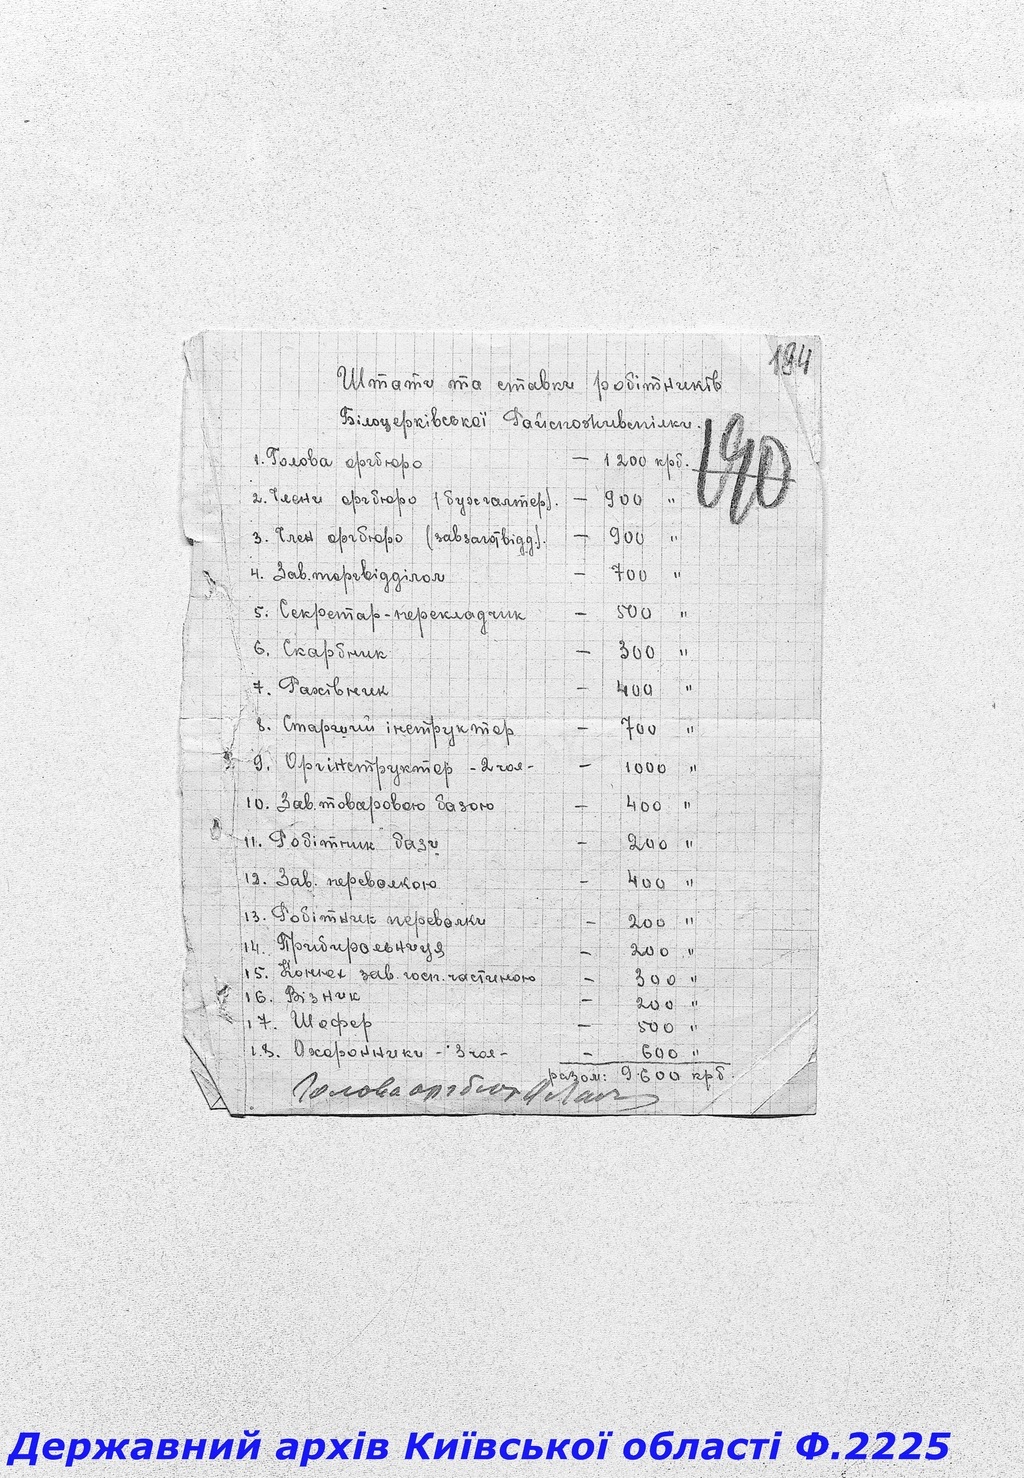 194
Штати та ставки робітників
Білоцерківської Райспоживспілки.
190
1. Голова оргбюро — 1200 крб.
2. Члени оргбюро (бухгалтер). — 900 "
3. Член оргбюро (завзаготвідд). — 900 "
4. Зав. торгвідділом — 700 "
5. Секретар-перекладчик — 500 "
6. Скарбник — 300 "
7. Рахівник — 400 "
8. Старший інструктор — 700 "
9. Оргінструктор - 2 чол - — 1000 "
10. Зав. товаровою базою — 400 "
11. Робітник бази — 200 "
12. Зав. перевалкою — 400 "
13. Робітник перевалки — 200 "
14. Прибиральниця — 200 "
15. Конюх зав. госп. частиною — 300 "
16. Візник — 200 "
17. Шофер — 500 "
18. Охоронники - 3 чол - — 600 "
разом: 9.600 крб.
Голова оргбюро
Державний архів Київської області Ф.2225